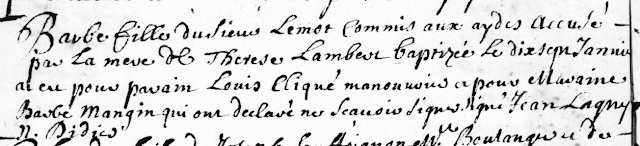 Barbe fille du sieur Lemot Commis aux aydes accusé
par la mere de Therese Lambert baptizée le dix sept Janvier
a eu pour parain Louis Cliqué manouvrier et pour Maraine
Barbe Mangin qui ont declaré ne scavoir signer signé Jean Lagny
N. Didier
Boulanger et de